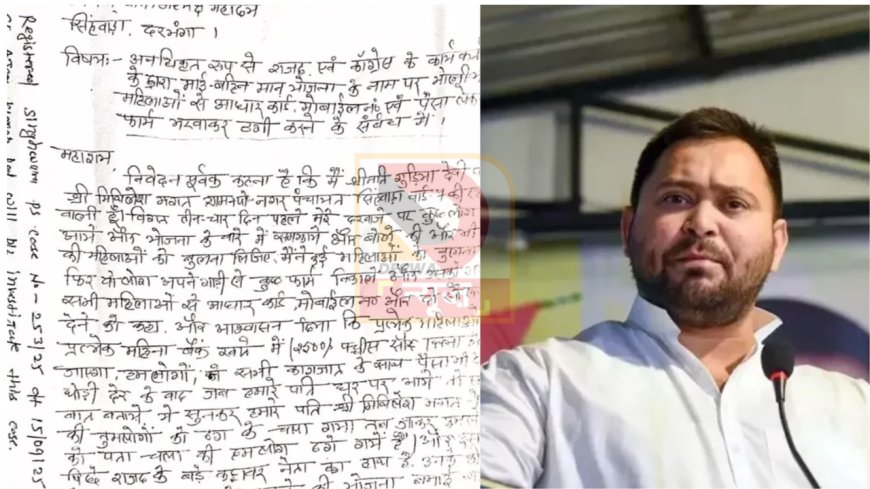 सिंहवाड़ा, दरभंगा ।
विषय:- अनाधिकृत रूप से राजद एवं काँग्रेस के कार्यकर्ता
के द्वारा माई-बहिन मान योजना के नाम पर
महिलाओं से आधार कार्ड, मोबाईल नं० एवं पैसा लेकर
फार्म भरवाकर ठगी करने के संबंध में ।
महाशय,
निवेदन पूर्वक कहना है कि मैं श्रीमती गुड़िया देवी
श्री मिथिलेश भगत रामपट्टी नगर पंचायत सिंहवाड़ा वार्ड
वाली हूँ विगत तीन-चार दिन पहले मेरे दरवाजे पर कुछ लोग
आये और योजना के बारे में समझाये और बोले की और भी
की महिलाओं को बुलवा लिजिए, मैंने कई महिलाओं को बुलवाया
फिर वो लोग अपने गाड़ी से कुछ फार्म निकाले और
सभी महिलाओं से आधार कार्ड, मोबाईल नं० और दो
देने को कहा, और आश्वासन दिया कि प्रत्येक महिलाओं
प्रत्येक महिना बैंक खाते में (2500/- पच्चीस सौ
जाएगा, हमलोगों ने सभी कागजात के साथ पैसा भी
थोड़ी देर के बाद जब हमारे पति घर पर आये तो
बात बताये में सुनकर हमारे पति श्री मिथिलेश भगत ने
की तुमलोगों को ठग के चला गया तब जाकर हमलोग
को पता चला की हमलोग ठगे गये हैं। और इस
पिछे राजद के बड़े कद्दावर नेता का हाथ है, उनके
की योजना बनाई
Registered Singhwara PS case No- 253/25 dt 15/09/25
will be investigate this case.
न्यूज़